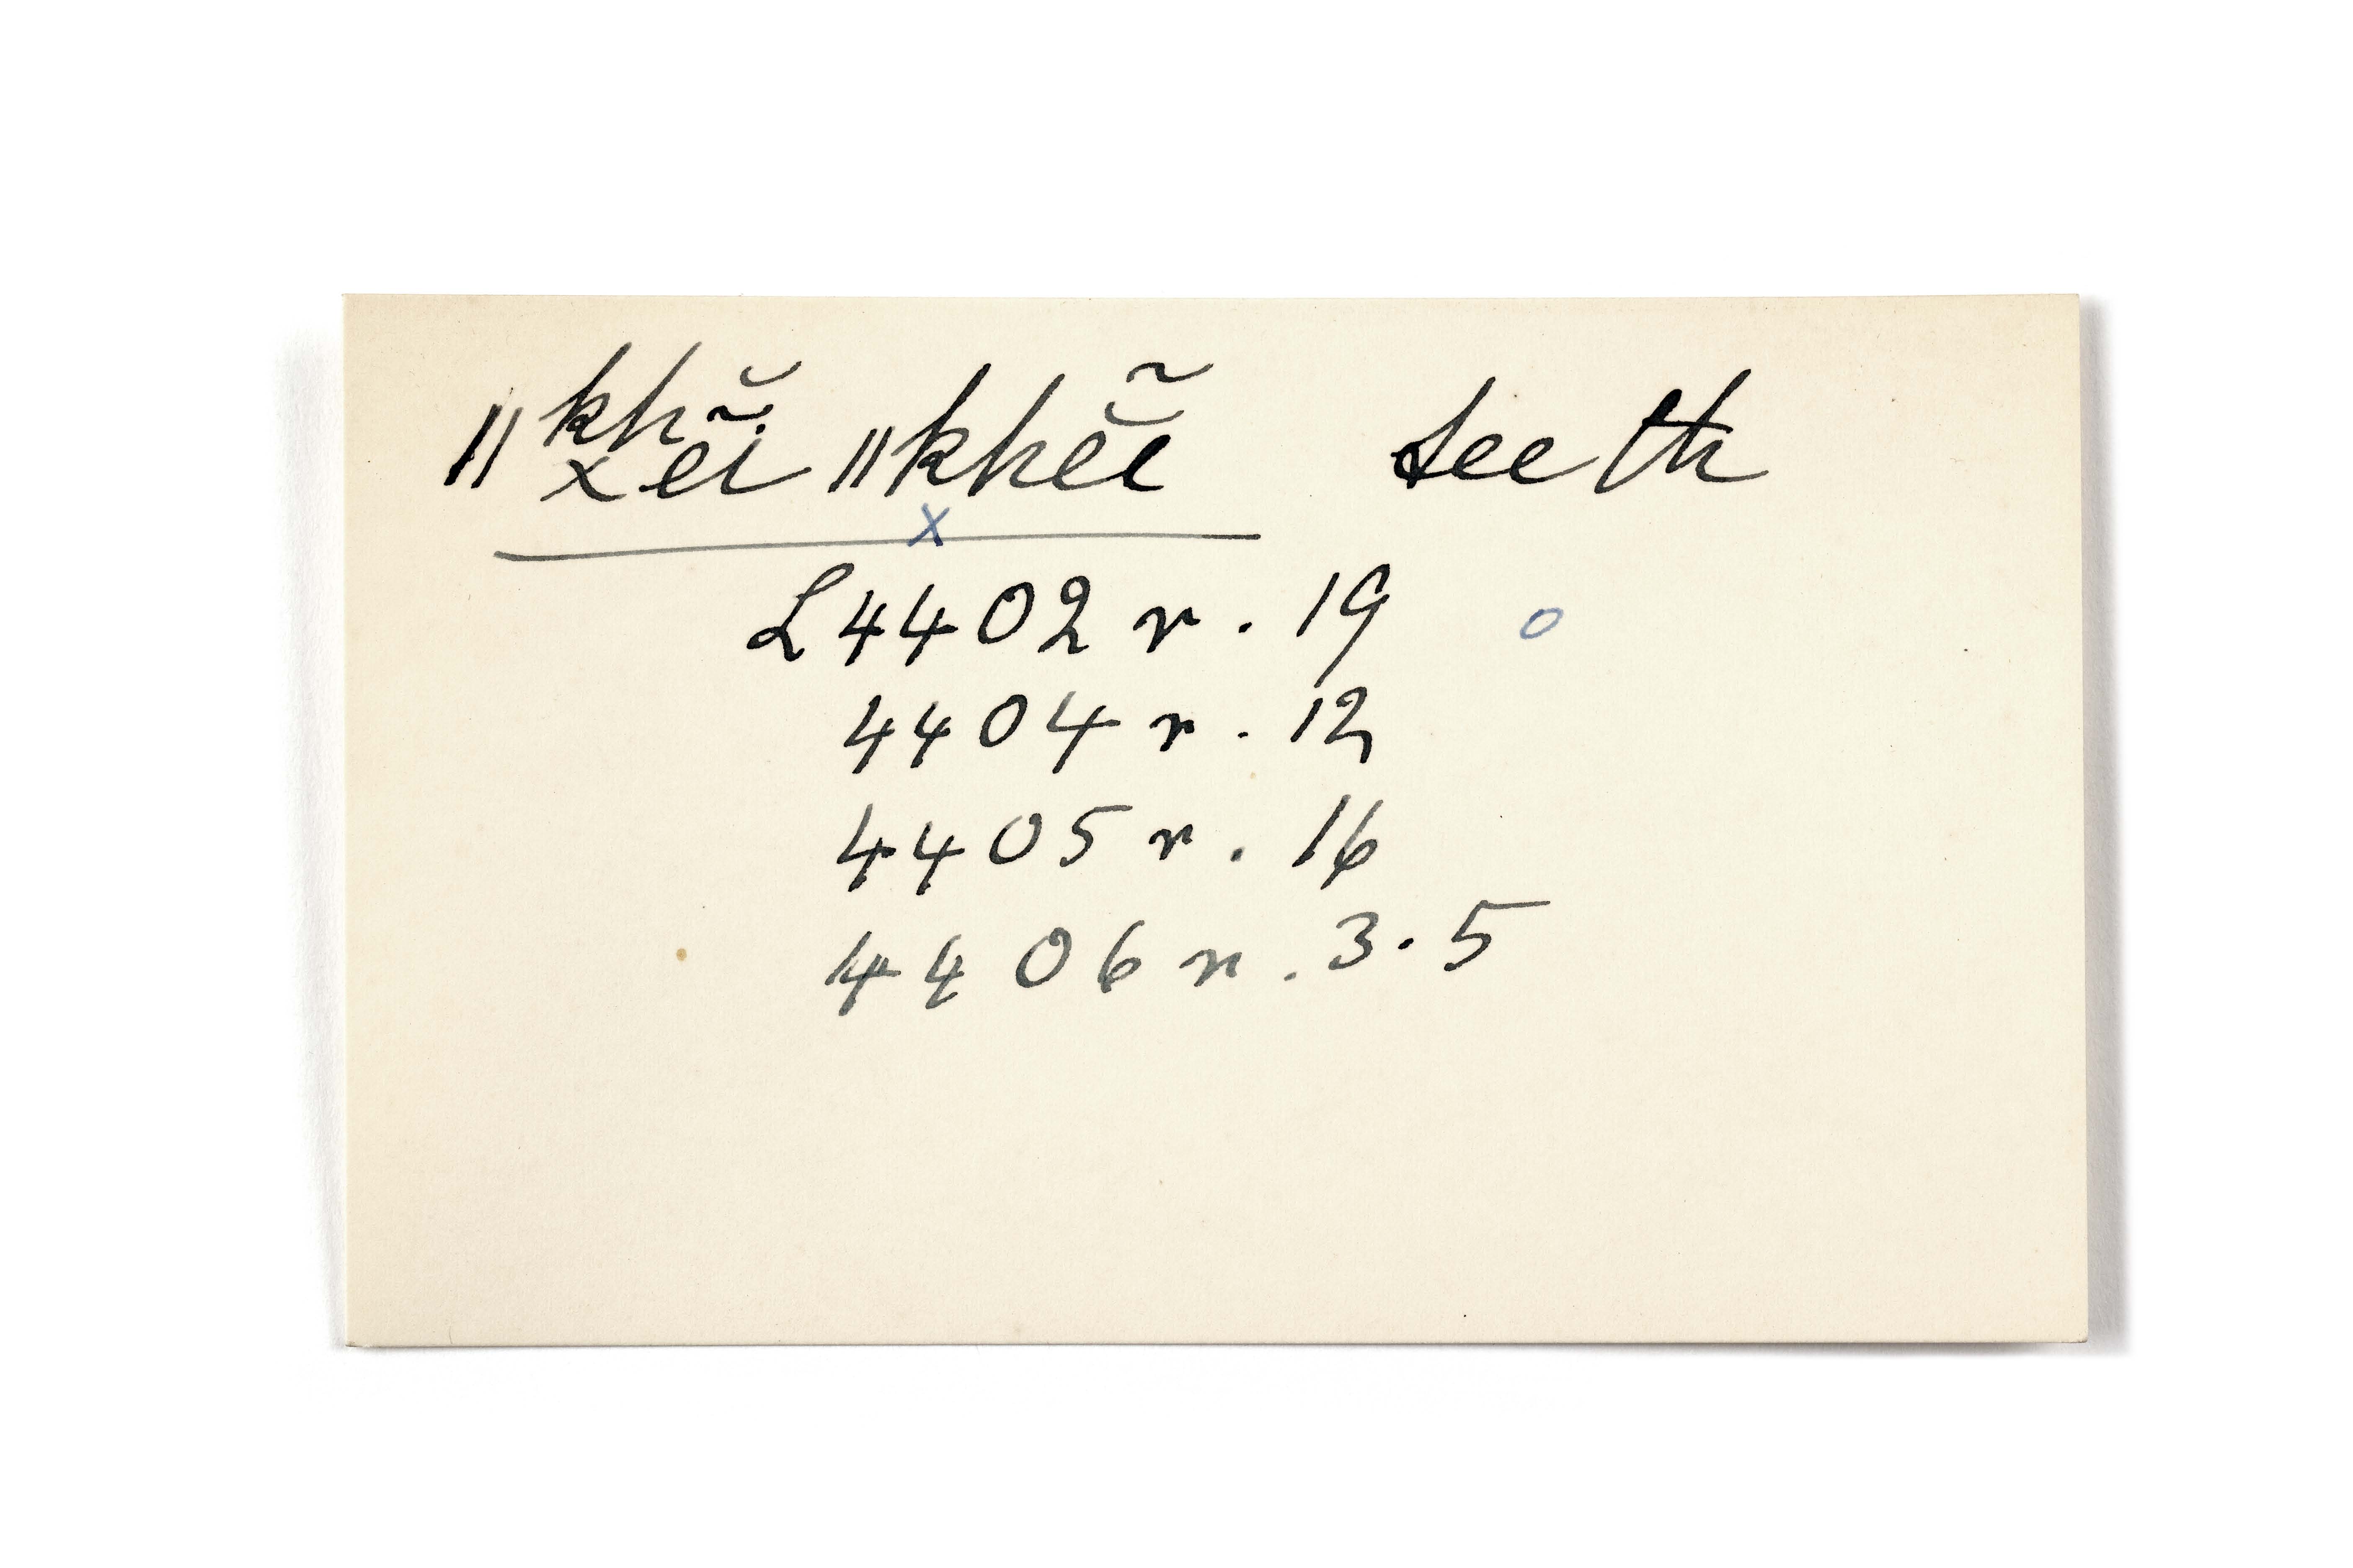 ǁkhχĕ̃ĭ ǁkhĕ̃ĕ teeth
x
L 4402 r. 19 o
4404 r. 12
4405 r. 16
4406 r. 3. 5